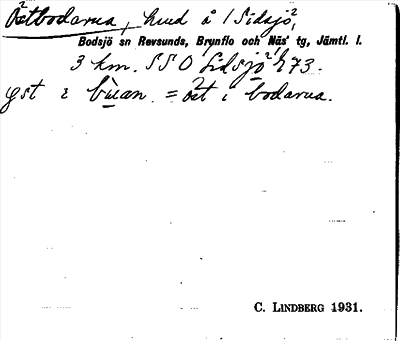 Östbodarna, hmd å 1 Sidsjö,
Bodsjö sn Revsunds, Brunflo och Näs' tg, Jämtl. l.
3 km. SSO Sidsjö h 73.
yst i bùan = öst i bodarna.
C. LINDBERG 1931.